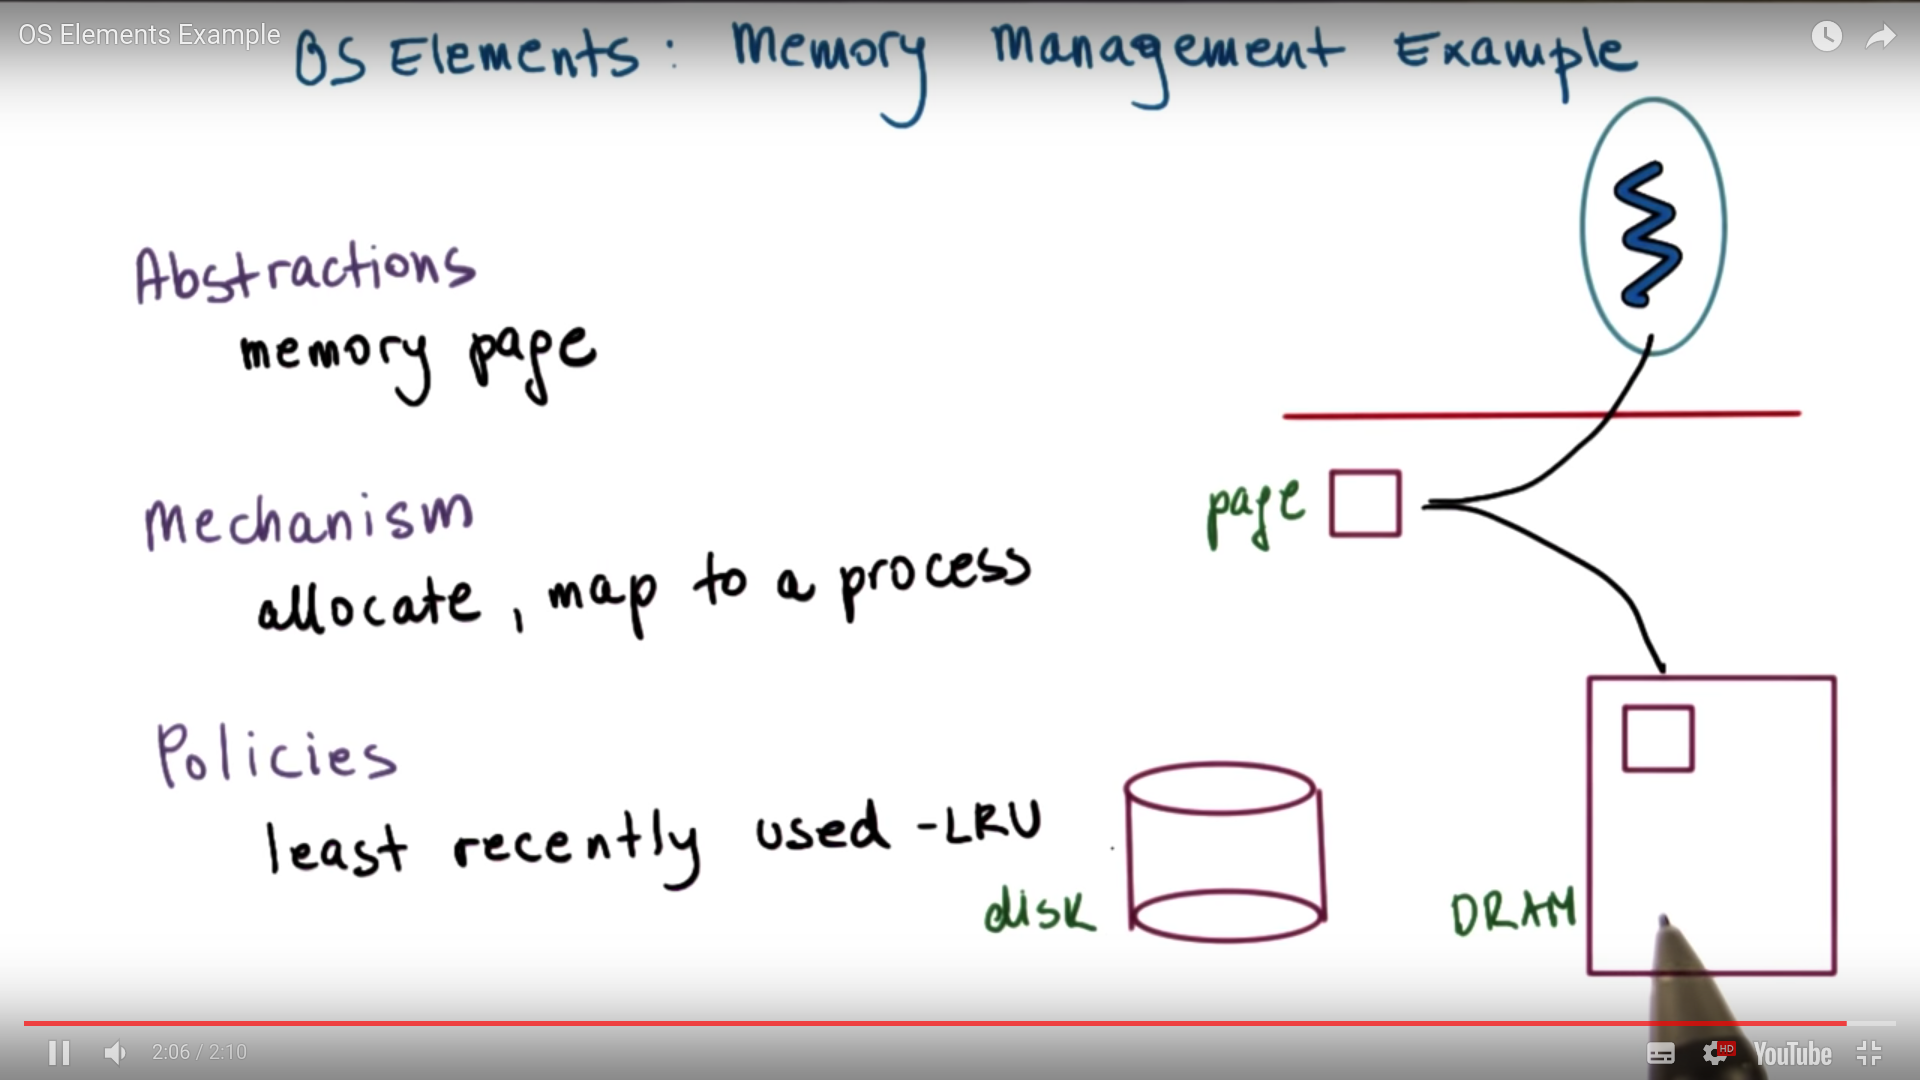 OS Elements Example
OS Elements: Memory Management Example
Abstractions
memory page
page
Mechanism
allocate, map to a process
Policies
least recently used -LRU
disk
DRAM
2:06 / 2:10
HD
YouTube